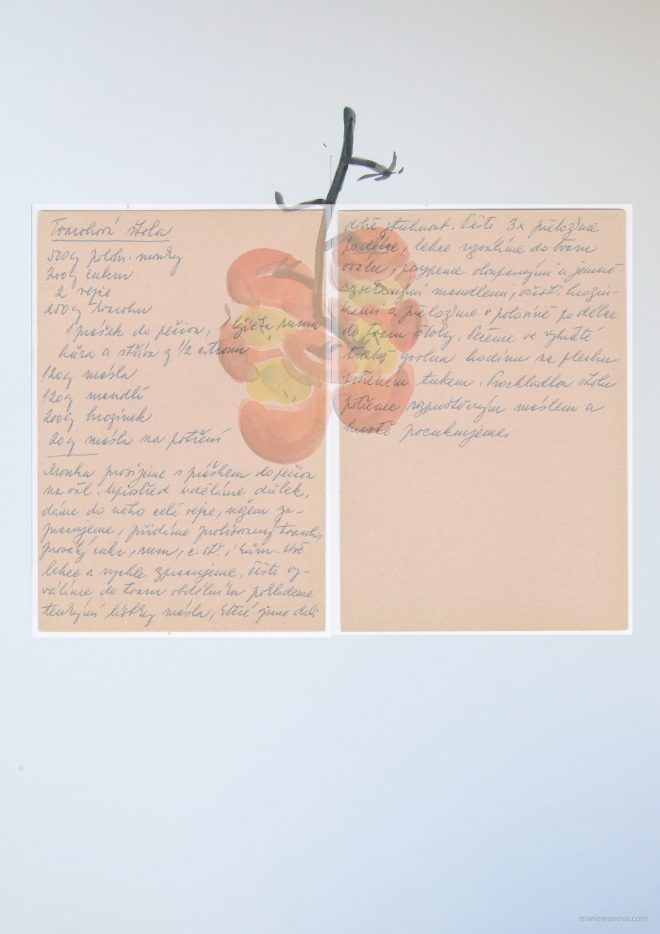 Tvarohová štola
500g poloh. mouky
200g cukru
2 vejce
250g tvarohu
1 prášek do pečiva, lžička rumu
kůra a šťáva z 1/2 citronu
120g másla
120g mandlí
200g hrozinek
20g másla na potření
Mouku prosijeme s práškem do pečiva
na vál. Uprostřed uděláme důlek,
dáme do něho celá vejce, nožem za-
pracujeme, přidáme prolisovaný tvaroh,
prosátý cukr, rum, c. šť., kůru. Vše
lehce a rychle zpracujeme. Těsto vy-
válíme do tvaru obdélníku poklademe
tenkými lístky másla, které jsme dali
dobře ztuhnout. Těsto 3x přeložíme
po délce, lehce vyválíme do tvaru
oválu, posypeme oloupanými a jemně
usekanými mandlemi, očišť. hrozin-
kami a přeložíme v polovině po délce
do tvaru štoly. Pečeme ve vyhřáté
troubě zvolna hodinu na plechu
potřeném tukem. Prochladlou štolu
potřeme rozpuštěným máslem a
hustě pocukrujeme.
marievranova.com